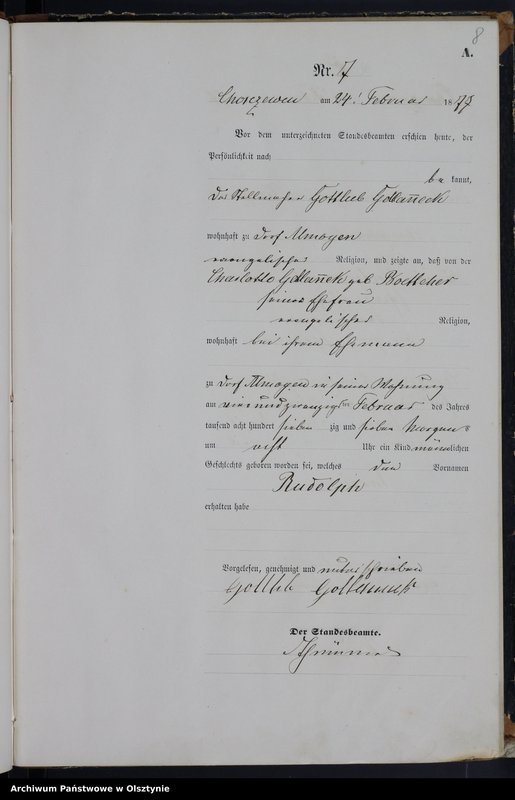 8
A.
Nr. 7
Choszewen am 24t Februar 1877
Vor dem unterzeichneten Standesbeamten erschien heute, der
Persönlichkeit nach
be kannt,
der Stellmacher Gottlieb
wohnhaft zu Dorf Almoyen
evangelischer Religion, und zeigte an, daß von der
Charlotte geb
seiner Ehefrau
evangelischer Religion,
wohnhaft bei ihrem Ehemann
zu Dorf Almoyen in seiner Wohnung
am vierundzwanzigsten Februar des Jahres
tausend acht hundert sieben zig und sieben Morgens
um acht Uhr ein Kind männlichen
Geschlechts geboren worden sei, welches den Vornamen
Rudolph
erhalten habe
Vorgelesen, genehmigt und unterschrieben
Gottlieb
Der Standesbeamte.
Archiwum Państwowe w Olsztynie